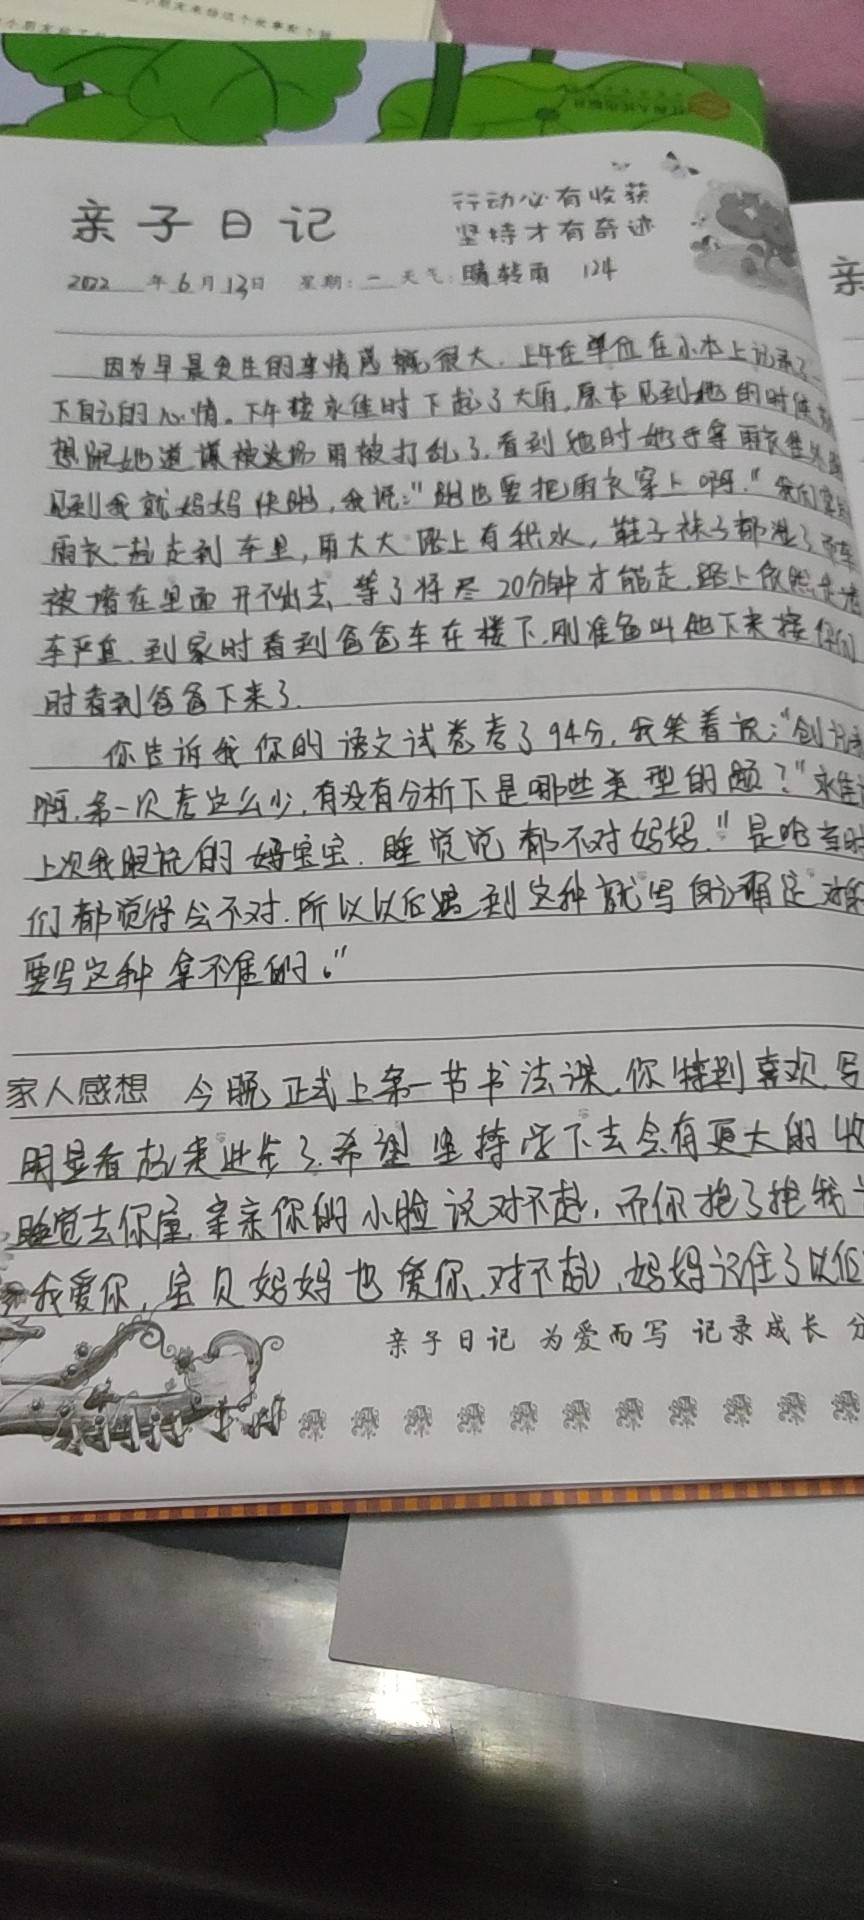 亲子日记
行动必有收获
坚持才有奇迹
2022年6月13日 星期:一 天气:晴转雨 124
因为早晨发生的事情感触很大.上午在单位在小本上记录了一
下自己的心情。下午接永佳时下起了大雨,原本见到她的时候
想跟她道谦被这场雨被打乱了.看到她时她手拿雨衣
见到我就妈妈快跑,我说:"跑也要把雨衣穿上啊."我们穿好
雨衣一起走到车里,雨太大路上有积水,鞋子袜子都湿了而车
被堵在里面开不出去.等了将尽20分钟才能走.路上依然
车严重.到家时看到爸爸车在楼下.刚准备叫他下来接你们
时看到爸爸下来了.
你告诉我你的语文试卷考了94分,我笑着说:"创
啊.第一次考这么少,有没有分析下是哪些类型的题?"永佳
上次我跟说的妈宝宝.睡觉 都不对妈妈."是
们都觉得会不对.所以以后遇到这种就写自己确定对的
要写这种拿不准的。"
家人感想 今晚正式上第一节书法课.你特别喜欢.写
明显看起来进步了.希望坚持学下去会有更大的收
睡觉去你屋.亲亲你的小脸说对不起,而你抱了抱我
我爱你,宝贝妈妈也爱你.对不起.妈妈记住了以后
亲子日记 为爱而写 记录成长
亲